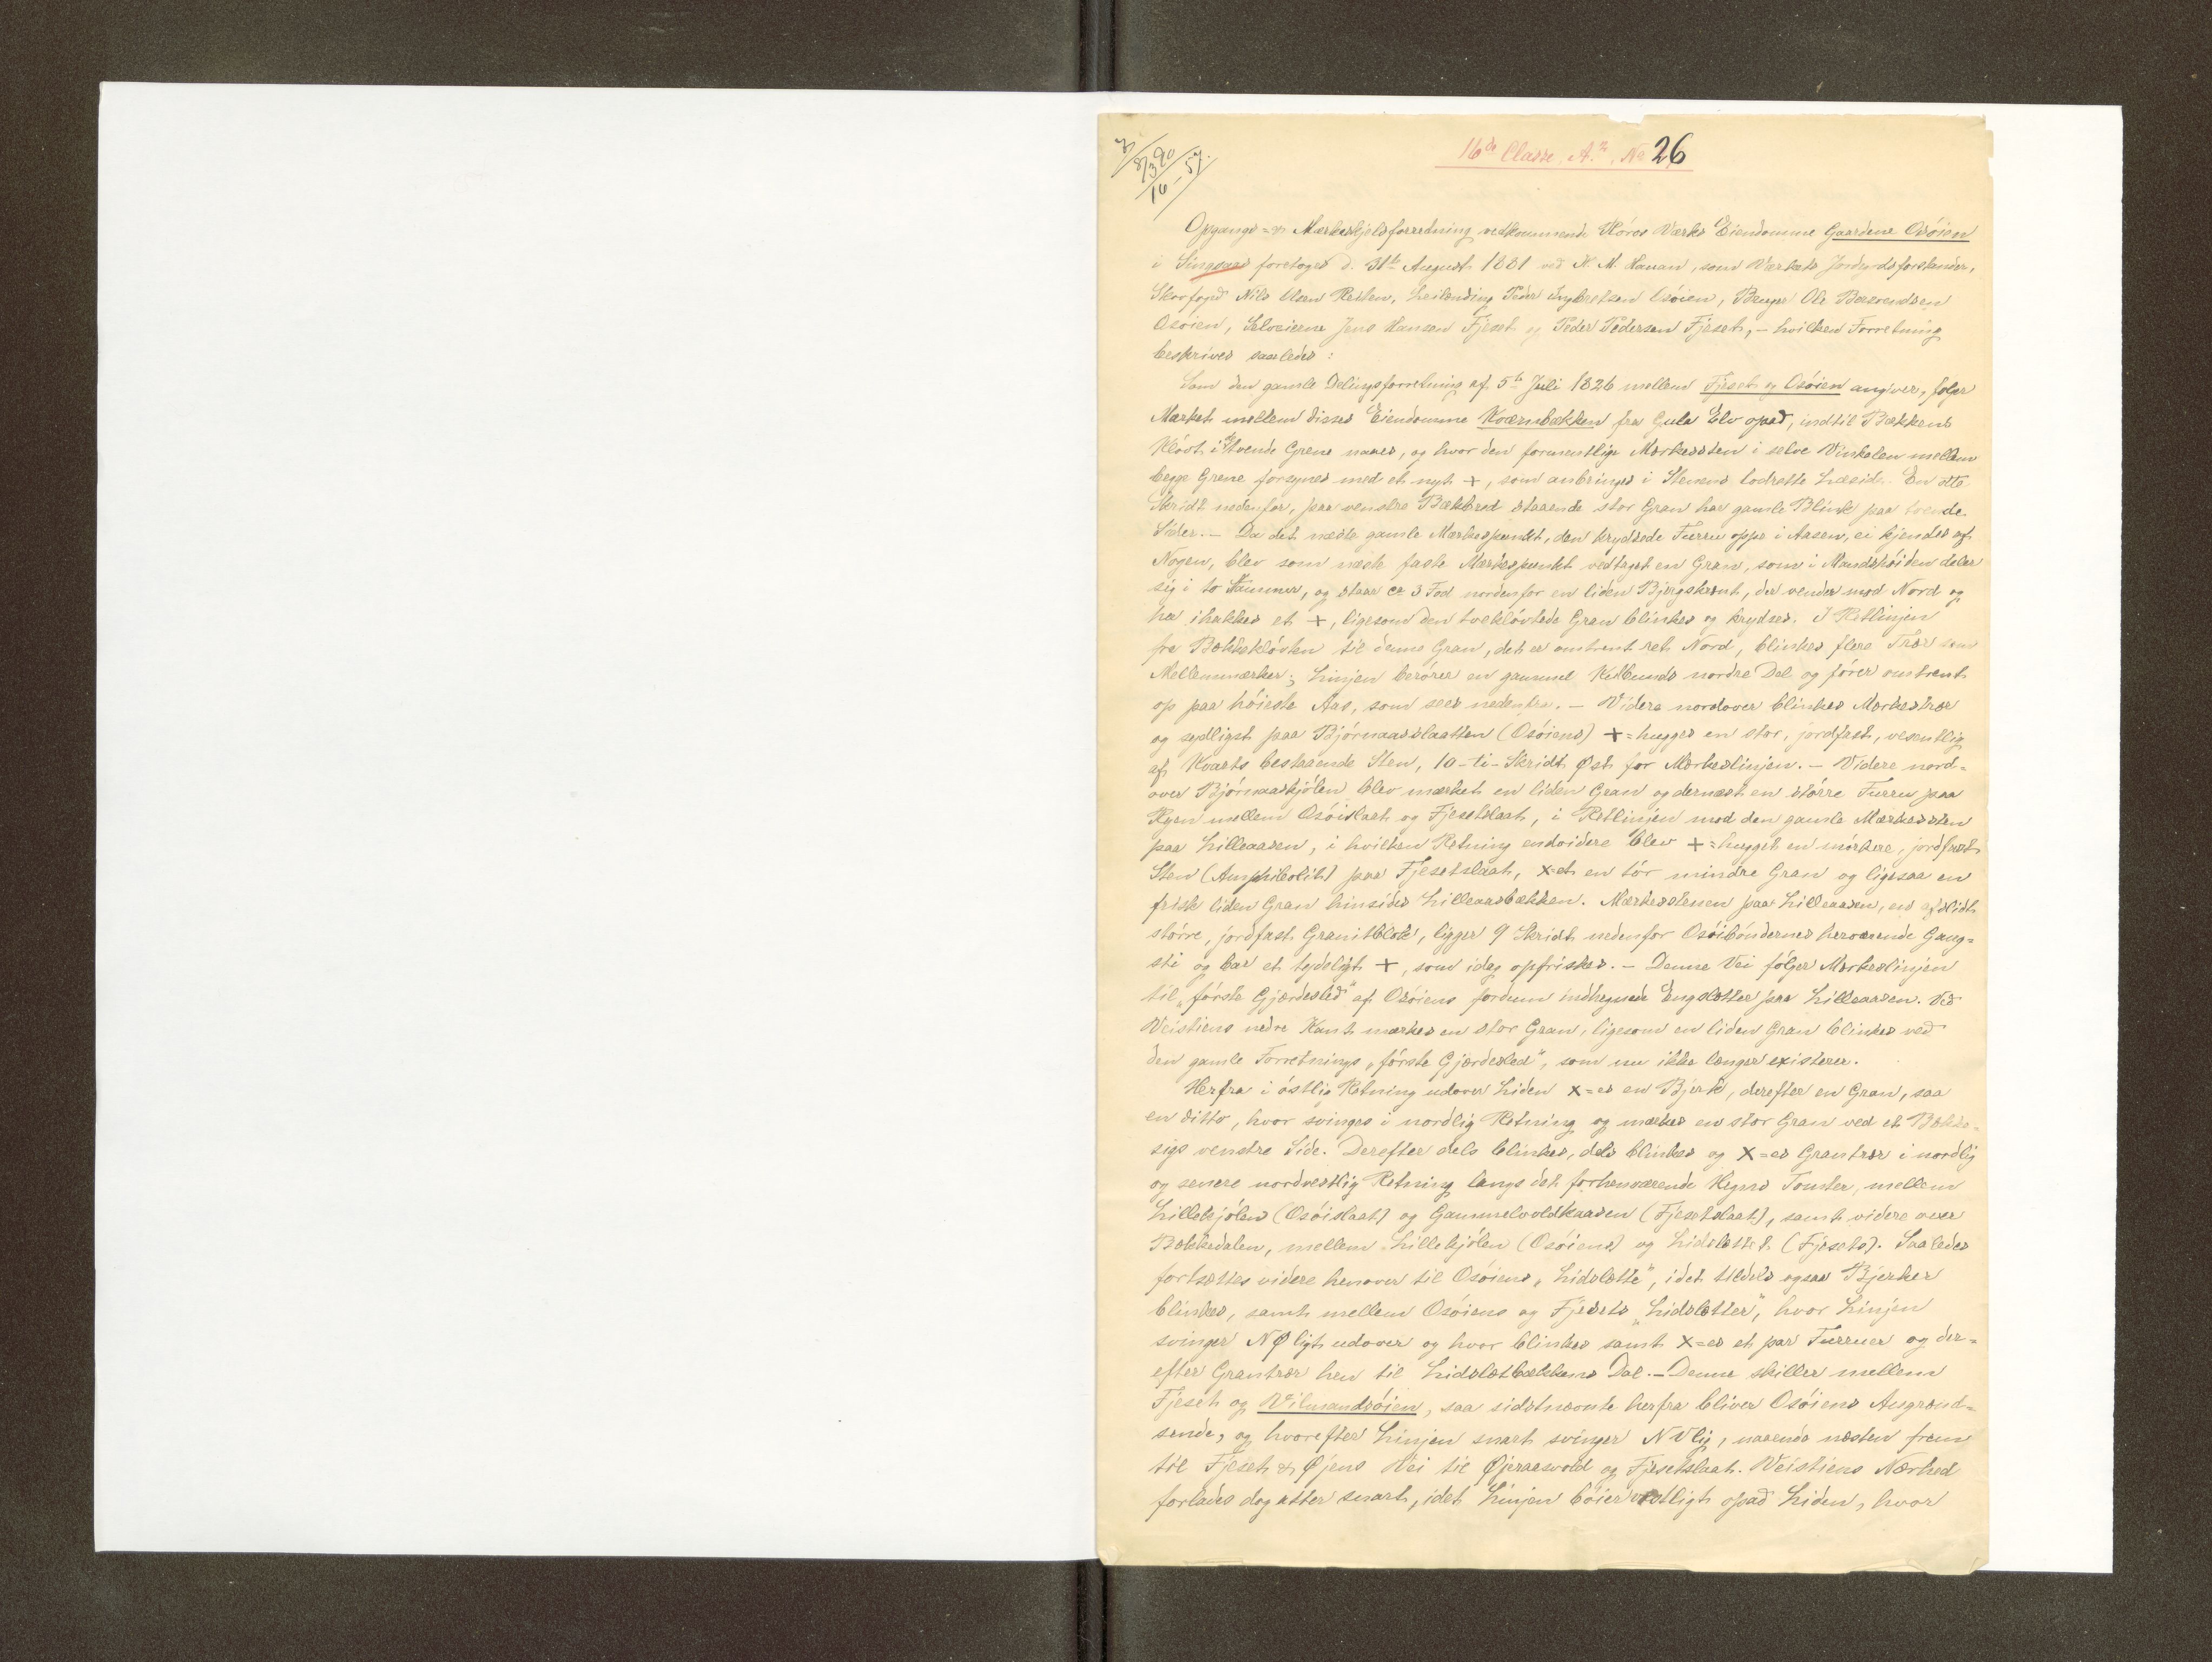 8/3 90
10-57.
16de Classe, A.2. No 26
Opgangs- & Markeskjelsforretning vedkommende Röros Værks Eiendomme Gaardene Osöien
i Singsaas foretoges d. 31te August 1881 ved H. M. Hauan, som Værkets Jordgodsforstander,
Skovfogd Nils Olsen Reiten, Leilending Peder Ingbretsen Osöien, Bruger Ole Berentsen
Osöien, Selveierne Jens Hansen Fjeset og Peder Pedersen Fjeset, – hvilken Forretning
beskrives saaledes:
Som den gamle Delingsforretning af 5te Juli 1826 mellem Fjeset og Osöien angiver, følger
Market mellem disses Eiendomme Kværnbækken fra Gula Elv opad, indtil Bækkens
Klövt i tvende Grene naaes, og hvor den formentlige Markessten i selve Vinkelen mellem
begge Grene forsynes med et nyt +, som anbringes i Stenens lodrette Læside. En otte
Skridt nedenfor, paa venstre Bækbred staaende stor Gran har gamle Blink paa tvende
Sider. – Da det næste gamle Markespunkt, den krydsede Furru oppe i Aasen, ei kjendes af
Nogen, blev som næste faste Markespunkt vedtaget en Gran, som i Mandshöiden deler
sig i to Stammer, og staar ca 3 Fod nordenfor en liden Bjergskrent, der vender mod Nord og
her ihakkes et +, ligesom den tvoklövtede Gran blinkes og krydses. I Retlinjen
fra Bækkeklövten til denne Gran, det er omtrent ret Nord, blinkes flere Trær som
Mellemmærker; Linjen berörer en gammel Kulbunds nordre Del og förer omtrent
op paa höieste Aas, som sees nedenfra. – Videre nordover blinkes Markestrær
og sydligst paa Björnaasslaatten (Osöiens) +=hugges en stor, jordfast, vesentlig
af Kvarts bestaaende Sten, 10-ti-Skridt Øst for Markeslinjen. – Videre nord=
over Björnaaskjölen blev mærket en liden Gran og dernæst en större Furru paa
Ryen mellem Osöislaat og Fjesetslaat, i Retlinjen mod den gamle Markessten
paa Lilleaasen, i hvilken Retning endvidere blev +=hugget en mörkere, jordfast
Sten (Amphibolit) paa Fjesetslaat, x-et en tör mindre Gran og ligesaa en
frisk liden Gran hinsides Lilleaasbækken. Mærkesstenen paa Lilleaasen, en afslidt
större, jordfast Granitblok, ligger 9 Skridt nedenfor Osöiböndernes herværende Gang=
sti og bær et tydeligt +, som idag opfriskes. – Denne Vei fölger Markeslinjen
til „förste Gjærdesled" af Osöiens fordum indhegnede Engsletter paa Lilleaasen. Ved
Veistiens nedre Kant mærkes en stor Gran, ligesom en liden Gran blinkes ved
den gamle Forretnings „förste Gjærdesled", som nu ikke længer existerer.
Herfra i östlig Retning udover Liden x=es en Bjerk, derefter en Gran, saa
en ditto, hvor svinges i nordlig Retning og mærkes en stor Gran ved et Bække=
sigs venstre Side. Derefter dels blinkes, dels blinkes og x=es Grantrær i nordlig
og senere nordvestlig Retning langs det forhenværende Hegns Tomter, mellem
Lillekjölen (Osöislaat) og Gammelvoldkaasen (Fjesetslaat), samt videre over
Bækkedalen, mellem Lillekjölen (Osöiens) og Lidslettet (Fjesets). Saaledes
fortsættes videre henover til Osöiens „Lidslætte", idet tildels ogsaa Bjerker
blinkes, samt mellem Osöiens og Fjesets „Lidsletter", hvor Linjen
svinger NØligt udover og hvor blinkes samt x=es et par Furruer og der=
efter Grantrær hen til Lidsletbækkens Dal. – Denne skiller mellem
Fjeset og Vilmandsöien, saa sidstnævnte herfra bliver Osöiens Angrænd=
sende, og hvorefter Linjen snart svinger NVlig, naaende næsten frem
til Fjeset & Øjens Vei til Øjeraasvold og Fjesetslaat. Veistiens Nærhed
forlades dog atter snart, idet Linjen böier vestligt opad Liden, hvor